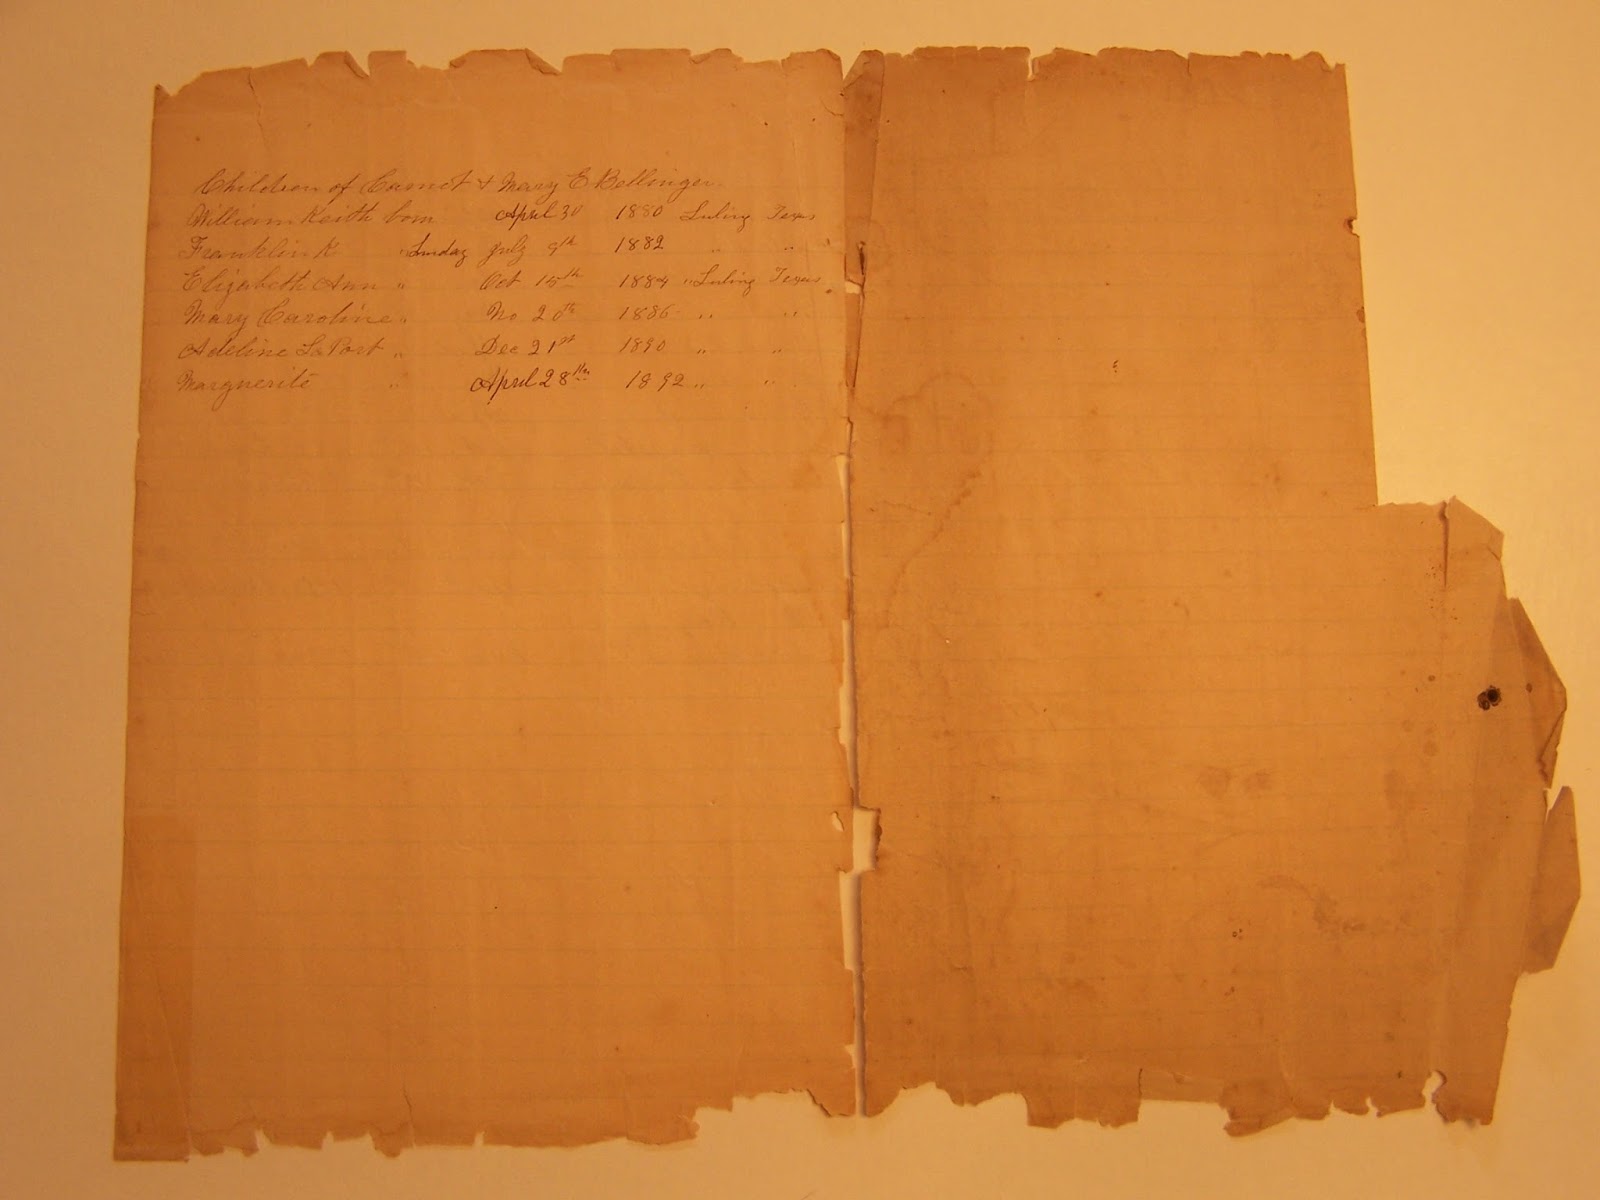 Children of Carnot & Mary E Bellinger
William Keith born April 30 1880 Luling Texas
Franklin K " Sunday July 9th 1882 " "
Elizabeth Ann " Oct 15th 1884 " Luling Texas
Mary Caroline " No 20th 1886 " "
Adeline La Port " Dec 21st 1890 " "
Marguerite " April 28th 1892 " "